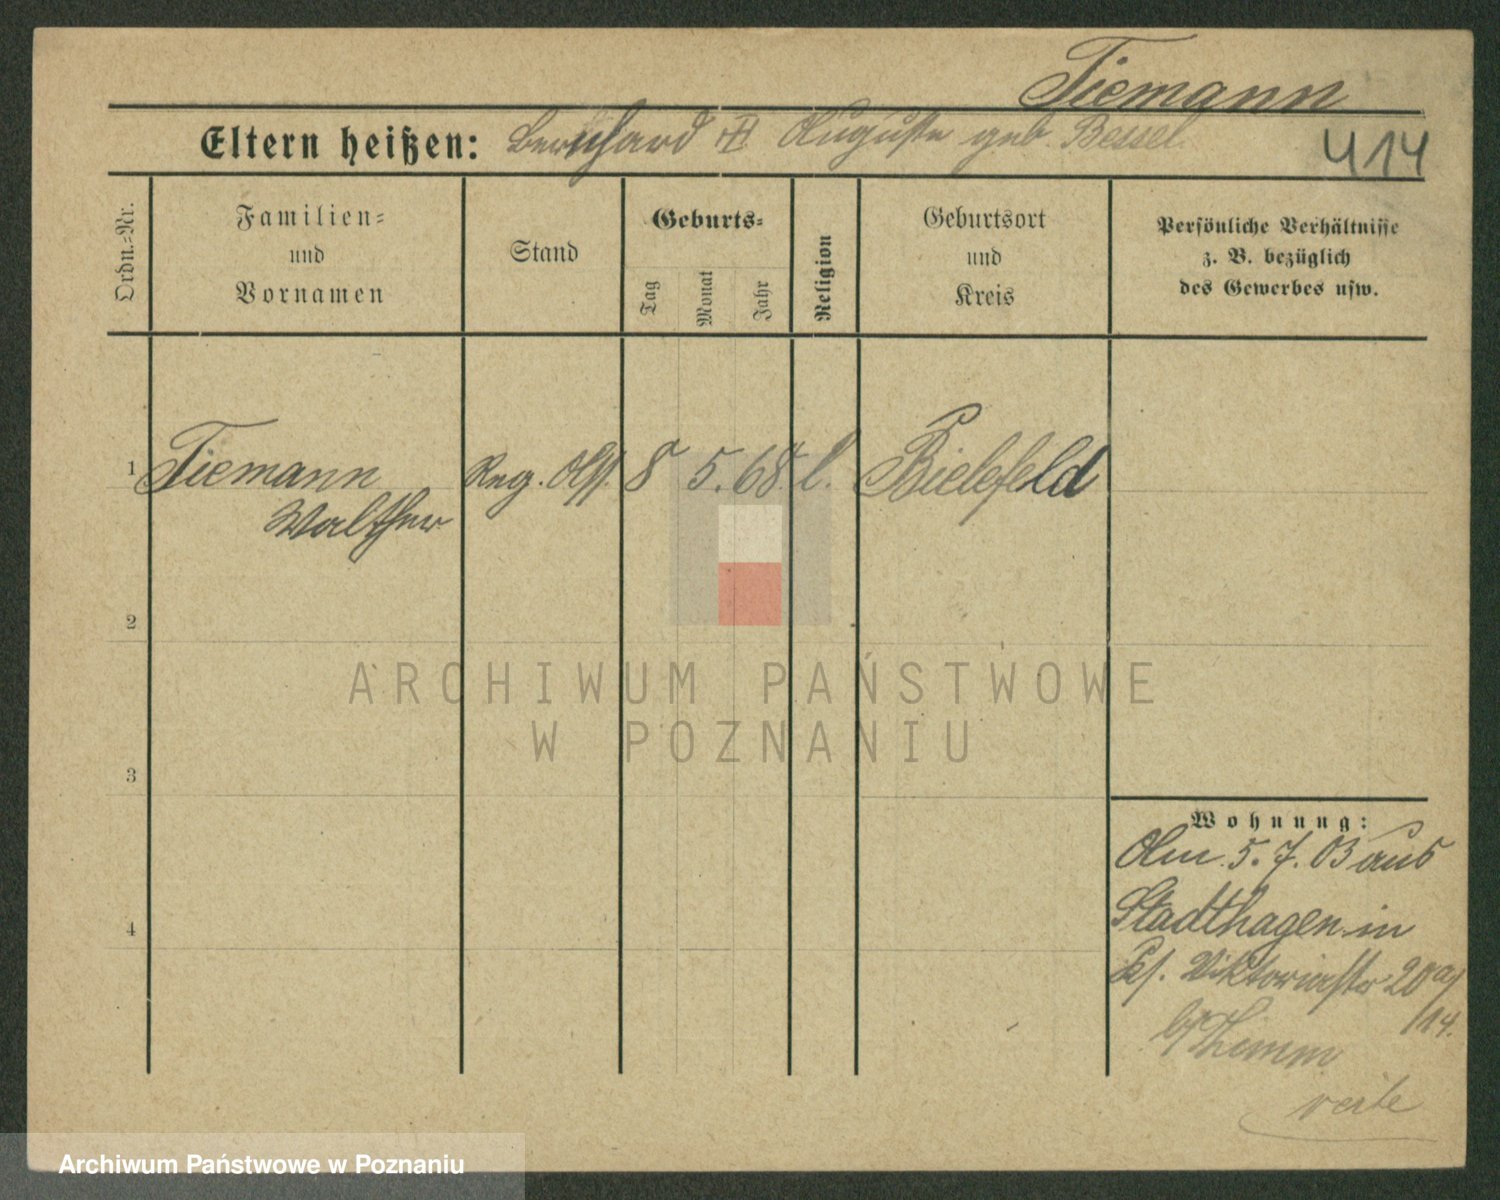 Tiemann
Eltern heißen: Bernhard Auguste geb. Bessel
414
Ordn.=Nr.
Familien=
und
Vornamen
Stand
Geburts=
Tag
Monat
Jahr
Religion
Geburtsort
und
Kreis
Persönliche Verhältnisse
z. B. bezüglich
des Gewerbes usw.
1 Tiemann Reg. Ass. 8 5. 68. l. Bielefeld
Walther
2
3
4
Wohnung:
Am 5. 7. 03 aus
Stadthagen in
Viktoriastr 20
/14.
verte
ARCHIWUM PAŃSTWOWE
W POZNANIU
Archiwum Państwowe w Poznaniu